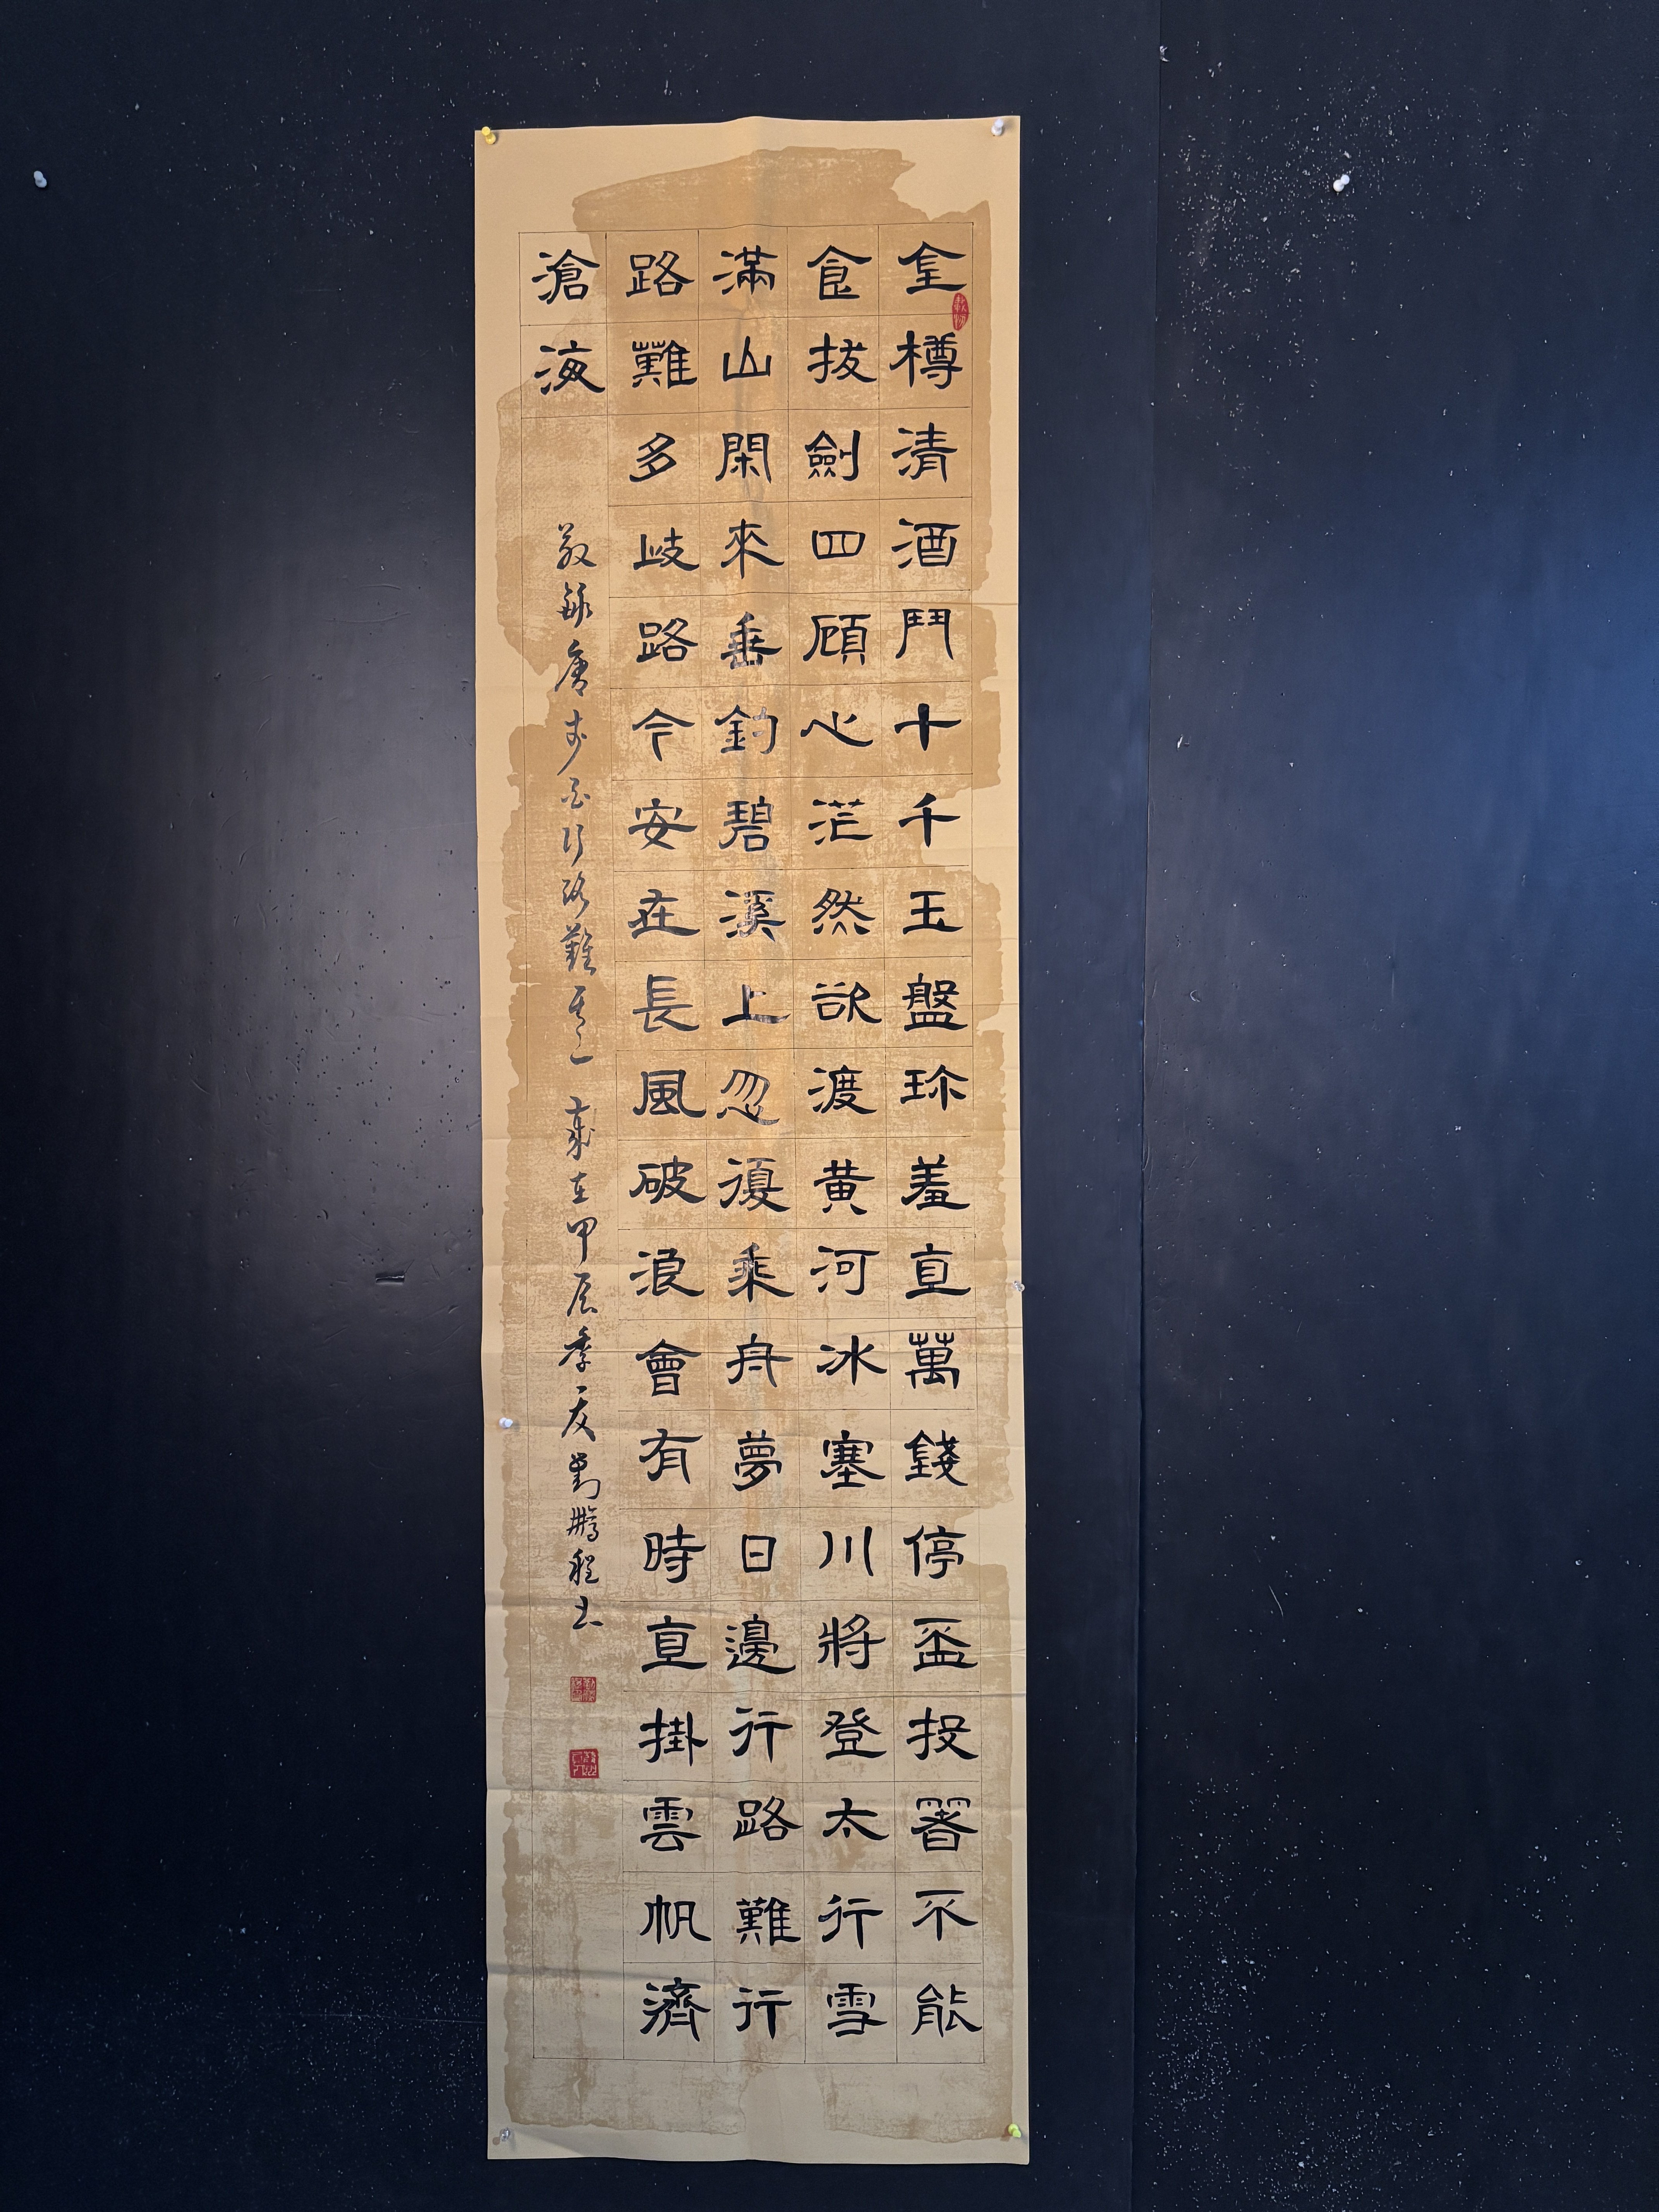 金樽清酒鬥十千玉盤珎羞直萬錢停盃投箸不能
食拔劍四頋心茫然欲渡黄河冰塞川將登太行雪
滿山閑來垂釣碧溪上忽復乘舟夢日邊行路難行
路難多歧路今安在長風破浪會有時直掛雲帆濟
滄海
敬録唐李白行路難其一歲在甲辰季夏劉鵬程書